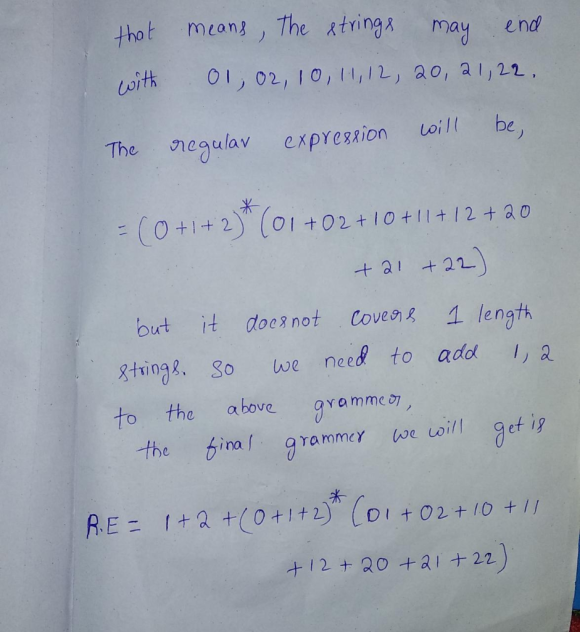 that means, The strings may end
with 01, 02, 10, 11, 12, 20, 21, 22.
The regular expression will be,
= (0+1+2)* (01+02+10+11+12+20
+ 21 + 22)
but it doesnot covers 1 length
strings. So we need to add 1, 2
to the above grammer,
the final grammer we will get is
R.E = 1+2+(0+1+2)* (01+02+10+11
+12+20+21+22)